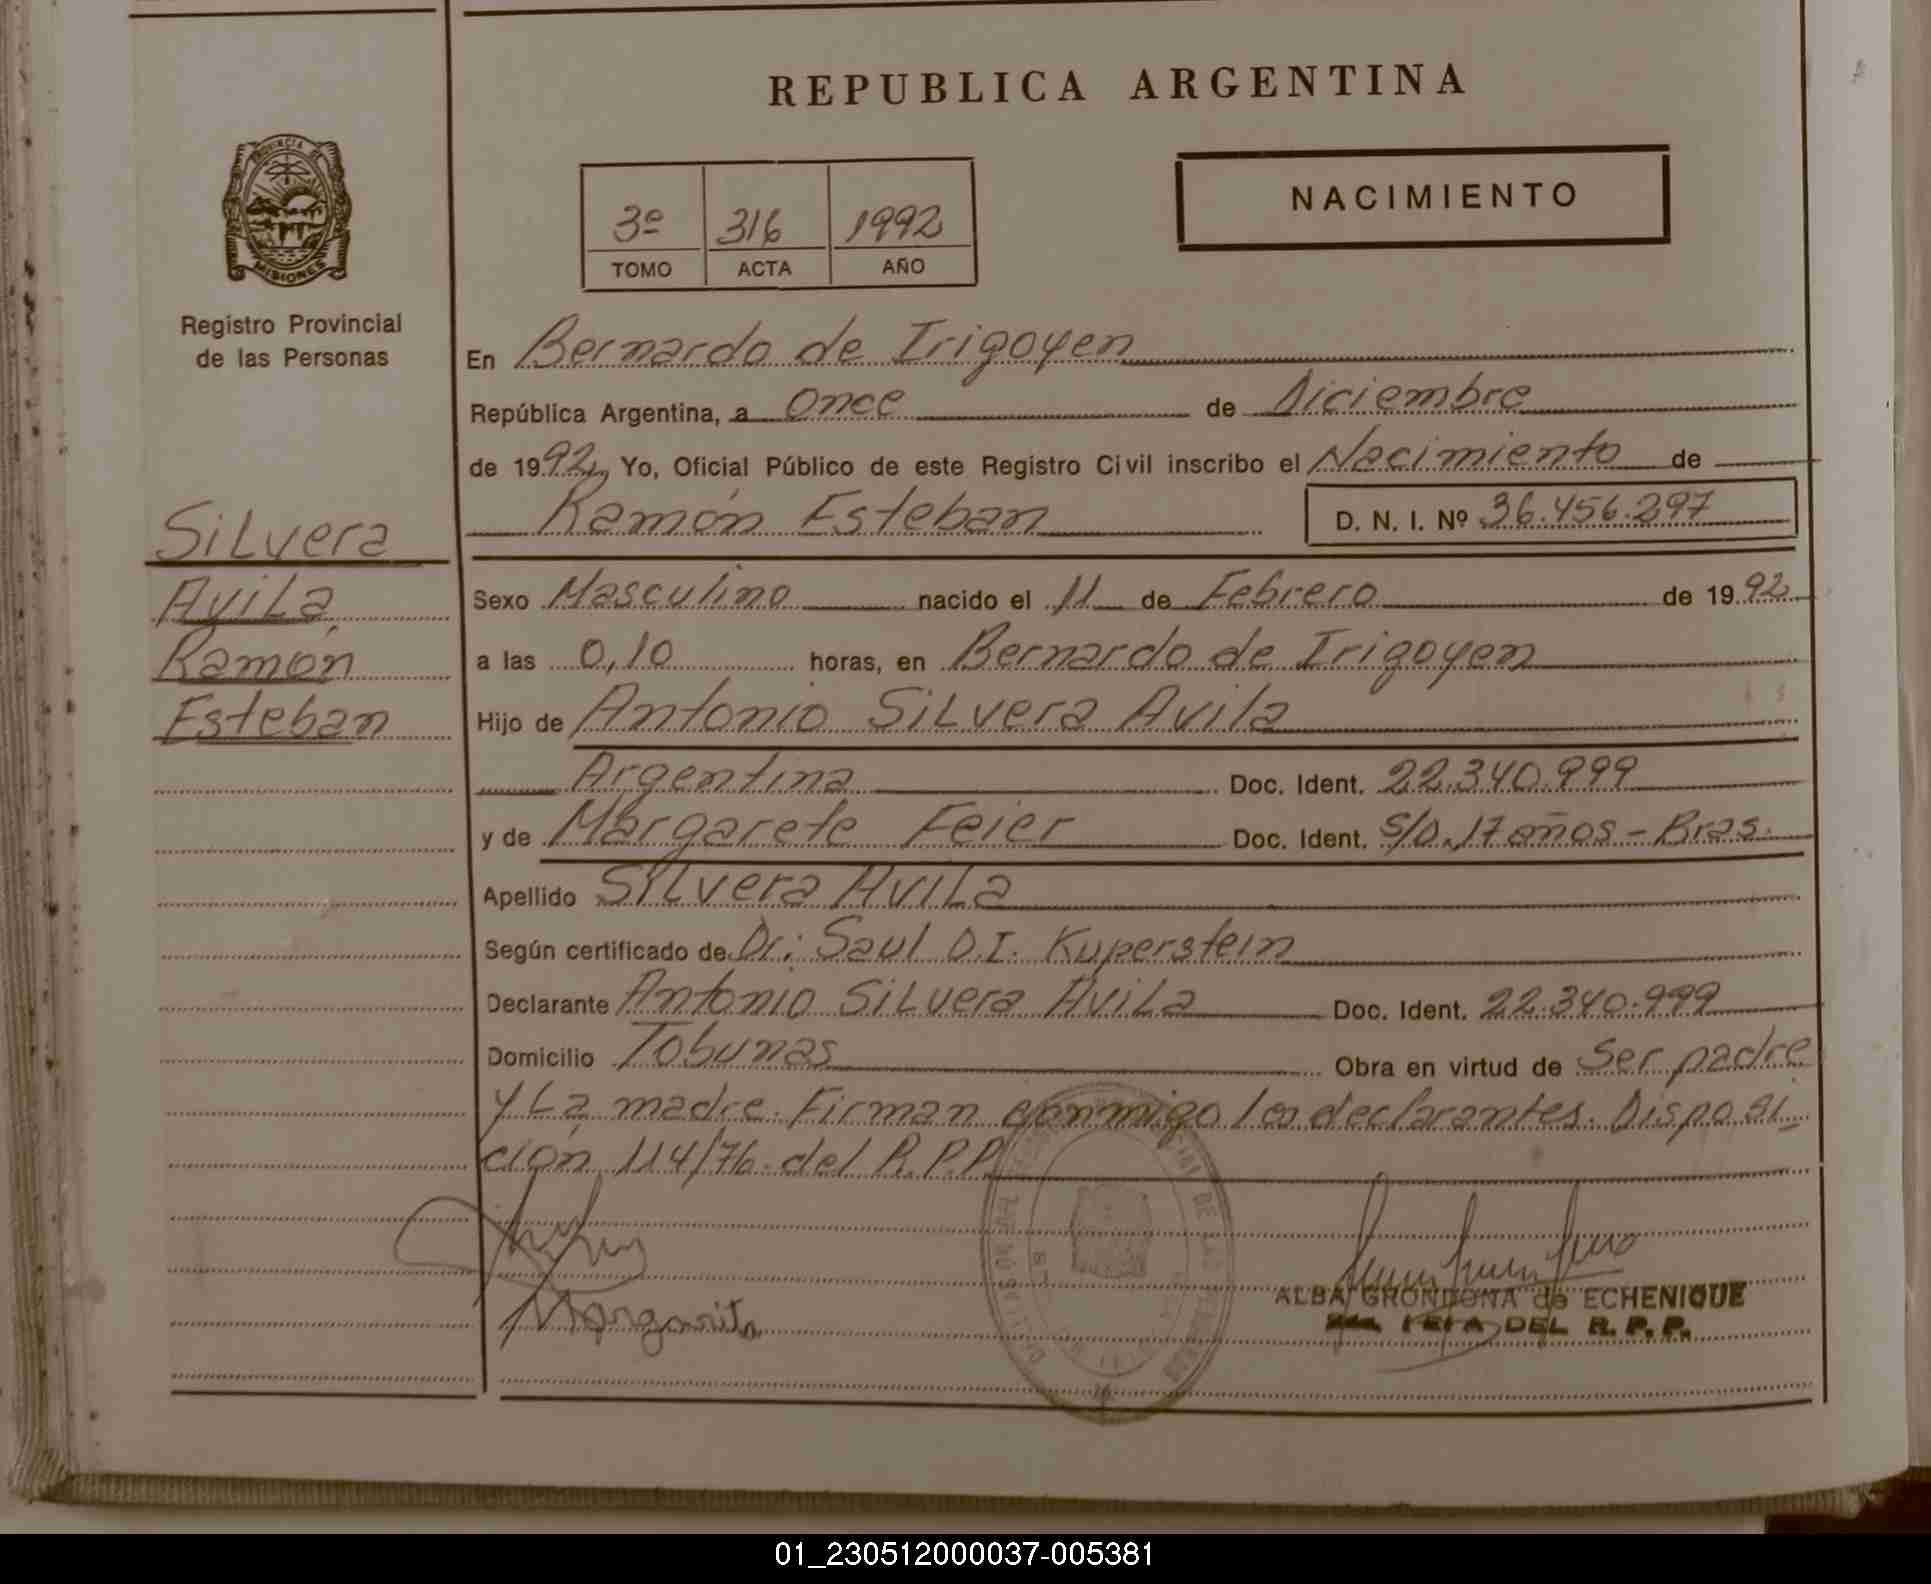 REPUBLICA ARGENTINA
PROVINCIA DE
MISIONES
Registro Provincial
de las Personas
3º 316 1992
TOMO ACTA AÑO
NACIMIENTO
En Bernardo de Irigoyen
República Argentina, a Once de Diciembre
de 1992, Yo, Oficial Público de este Registro Civil inscribo el Nacimiento de
Ramón Esteban D. N. I. Nº 36.456.297
Silvera
Avila
Ramón
Esteban
Sexo Masculino nacido el 11 de Febrero de 1992
a las 0,10 horas, en Bernardo de Irigoyen
Hijo de Antonio Silvera Avila
Argentina Doc. Ident. 22.340.999
y de Margarete Feier Doc. Ident. S/D. 17 años - Bras.
Apellido Silvera Avila
Según certificado de Dr: Saul D.I. Kuperstein
Declarante Antonio Silvera Avila Doc. Ident. 22.340.999
Domicilio Tobunas Obra en virtud de Ser padre
y La madre. Firman conmigo los declarantes. Disposi
ción 114/76 del R.P.P.
Margarita
ALBA GRONDONA de ECHENIQUE
JEFA DEL R. P. P.
01_230512000037-005381